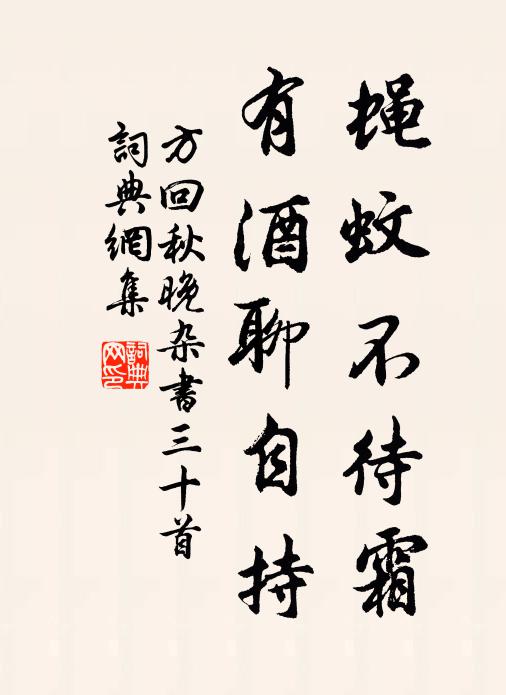 蝇蚊不待霜
有酒聊自持
方回秋晚杂書三十首
詞典網集
詞典网印